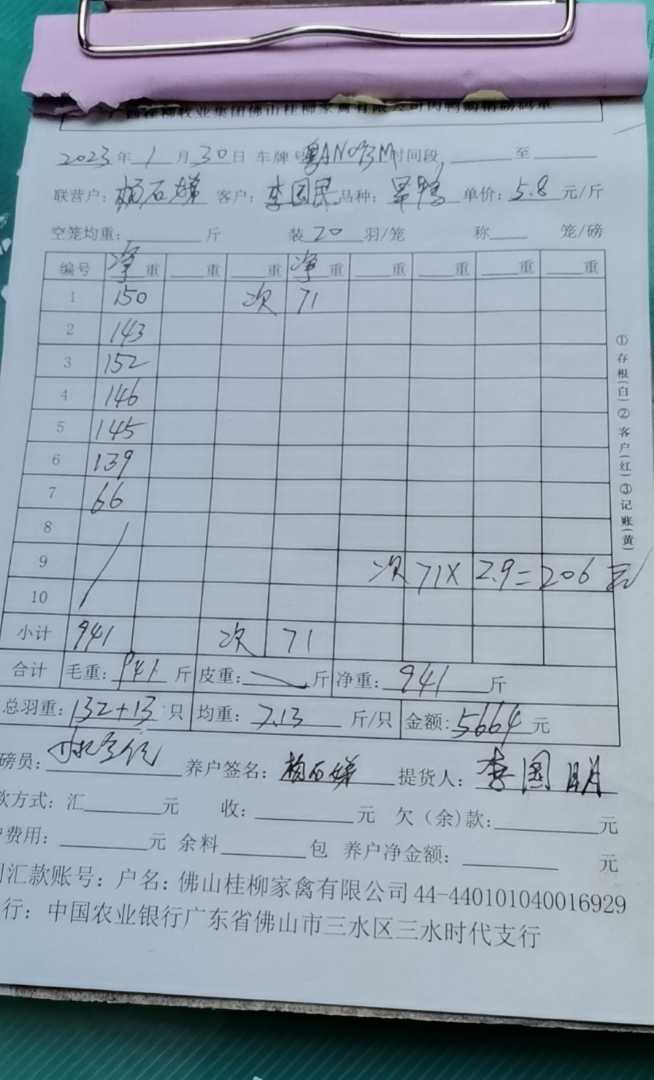 2023年1月30日 车牌号粤AN093M时间段 至
联营户:杨石娣 客户:李国民 品种: 单价:5.8元/斤
空笼均重: 斤 装20羽/笼 称 笼/磅
编号 净重 重 重 净重 重 重 重 重
1 150 次 71
2 143
3 152
4 146
5 145
6 139
7 66
8
9 次 71× 2.9=206元
10
小计 941 次 71
合计 毛重:941斤 皮重: 斤 净重:941斤
总羽重:132+13只 均重:7.13斤/只 金额:5664元
磅员: 养户签名:杨石娣 提货人:李国明
款方式:汇 元 收: 元 欠(余)款: 元
费用: 元 余料 包 养户净金额: 元
汇款账号:户名:佛山桂柳家禽有限公司44-440101040016929
行:中国农业银行广东省佛山市三水区三水时代支行
①存根(白)②客户(红)③记账(黄)